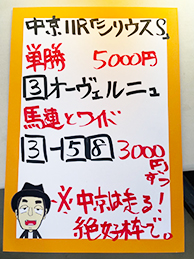 中京11R「シリウスS」
単勝 5000円
3オーヴェルニュ
馬連とワイド
3-5 8 3000円
ずつ
※中京は走る!
絶好枠で。